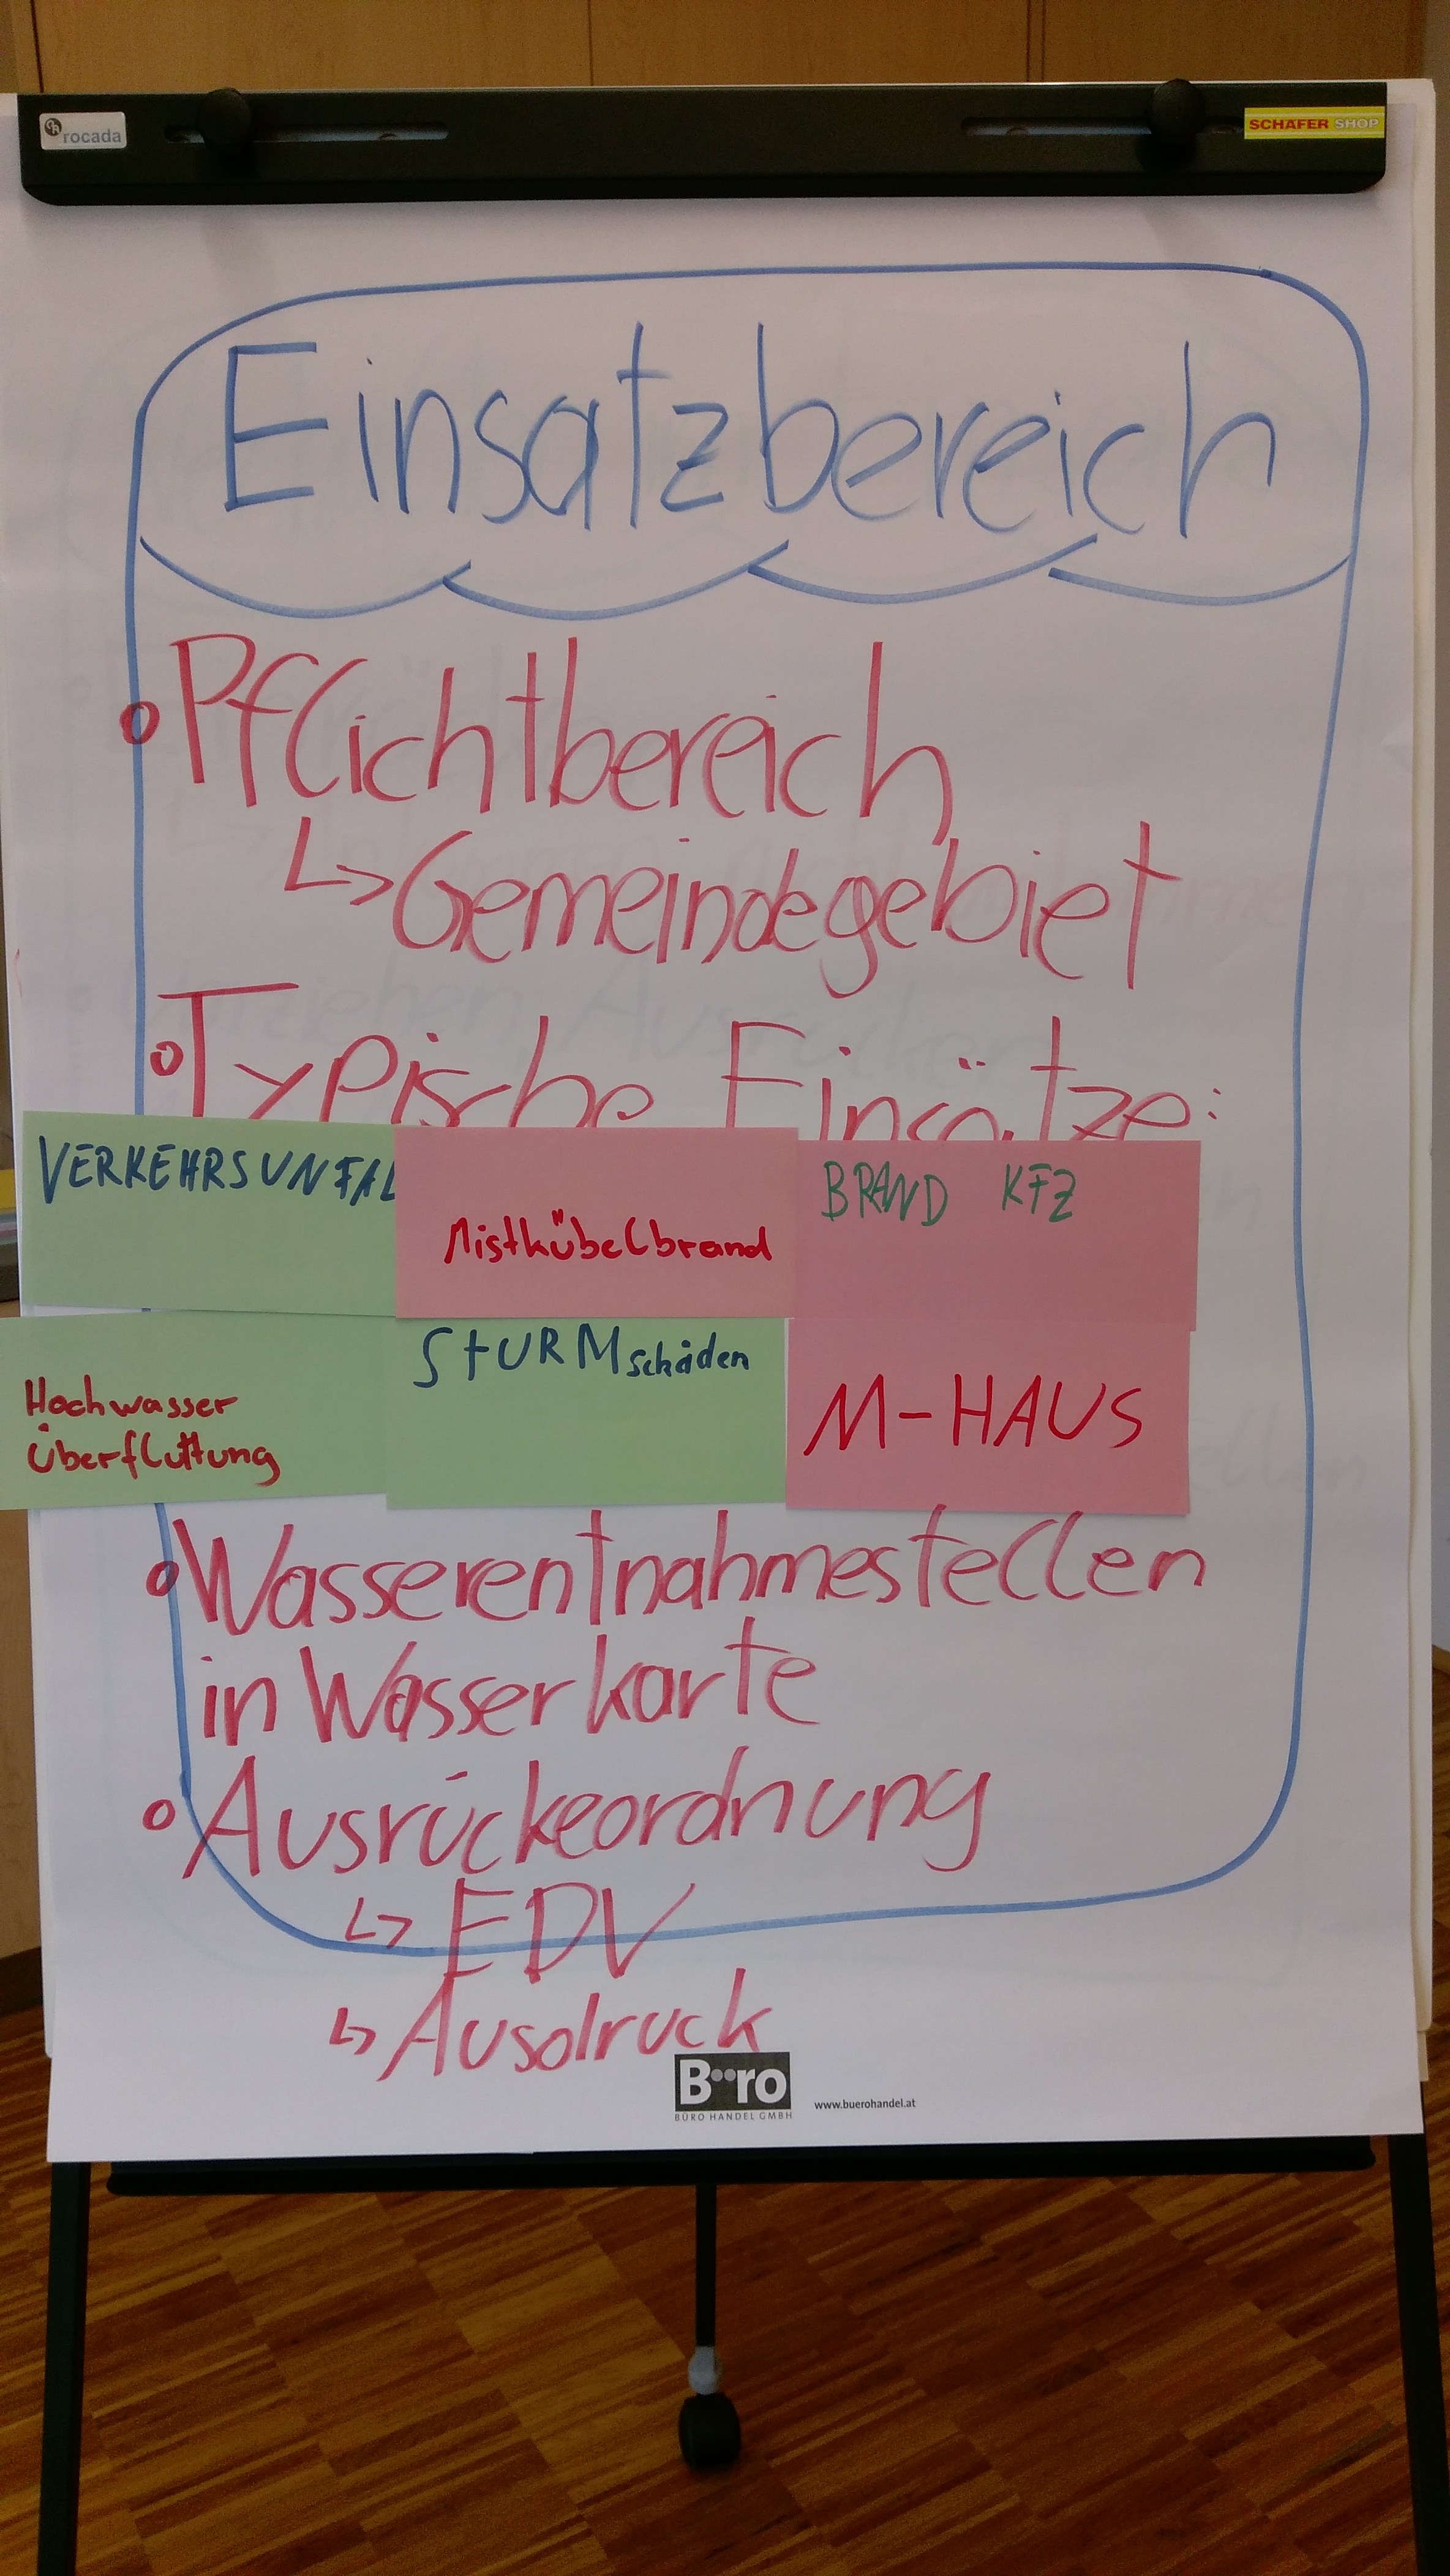 rocada
SCHÄFER SHOP
Einsatzbereich
Pflichtbereich
↳ Gemeindegebiet
Typische Einsätze:
VERKEHRSUNFAL
Mistkübelbrand
BRAND KFZ
Hochwasser
Überfluttung
StURMschäden
M-HAUS
Wasserentnahmestellen
in Wasserkarte
Ausrückeordnung
↳ EDV
↳ Ausdruck
Büro
BÜRO HANDEL GMBH
www.buerohandel.at